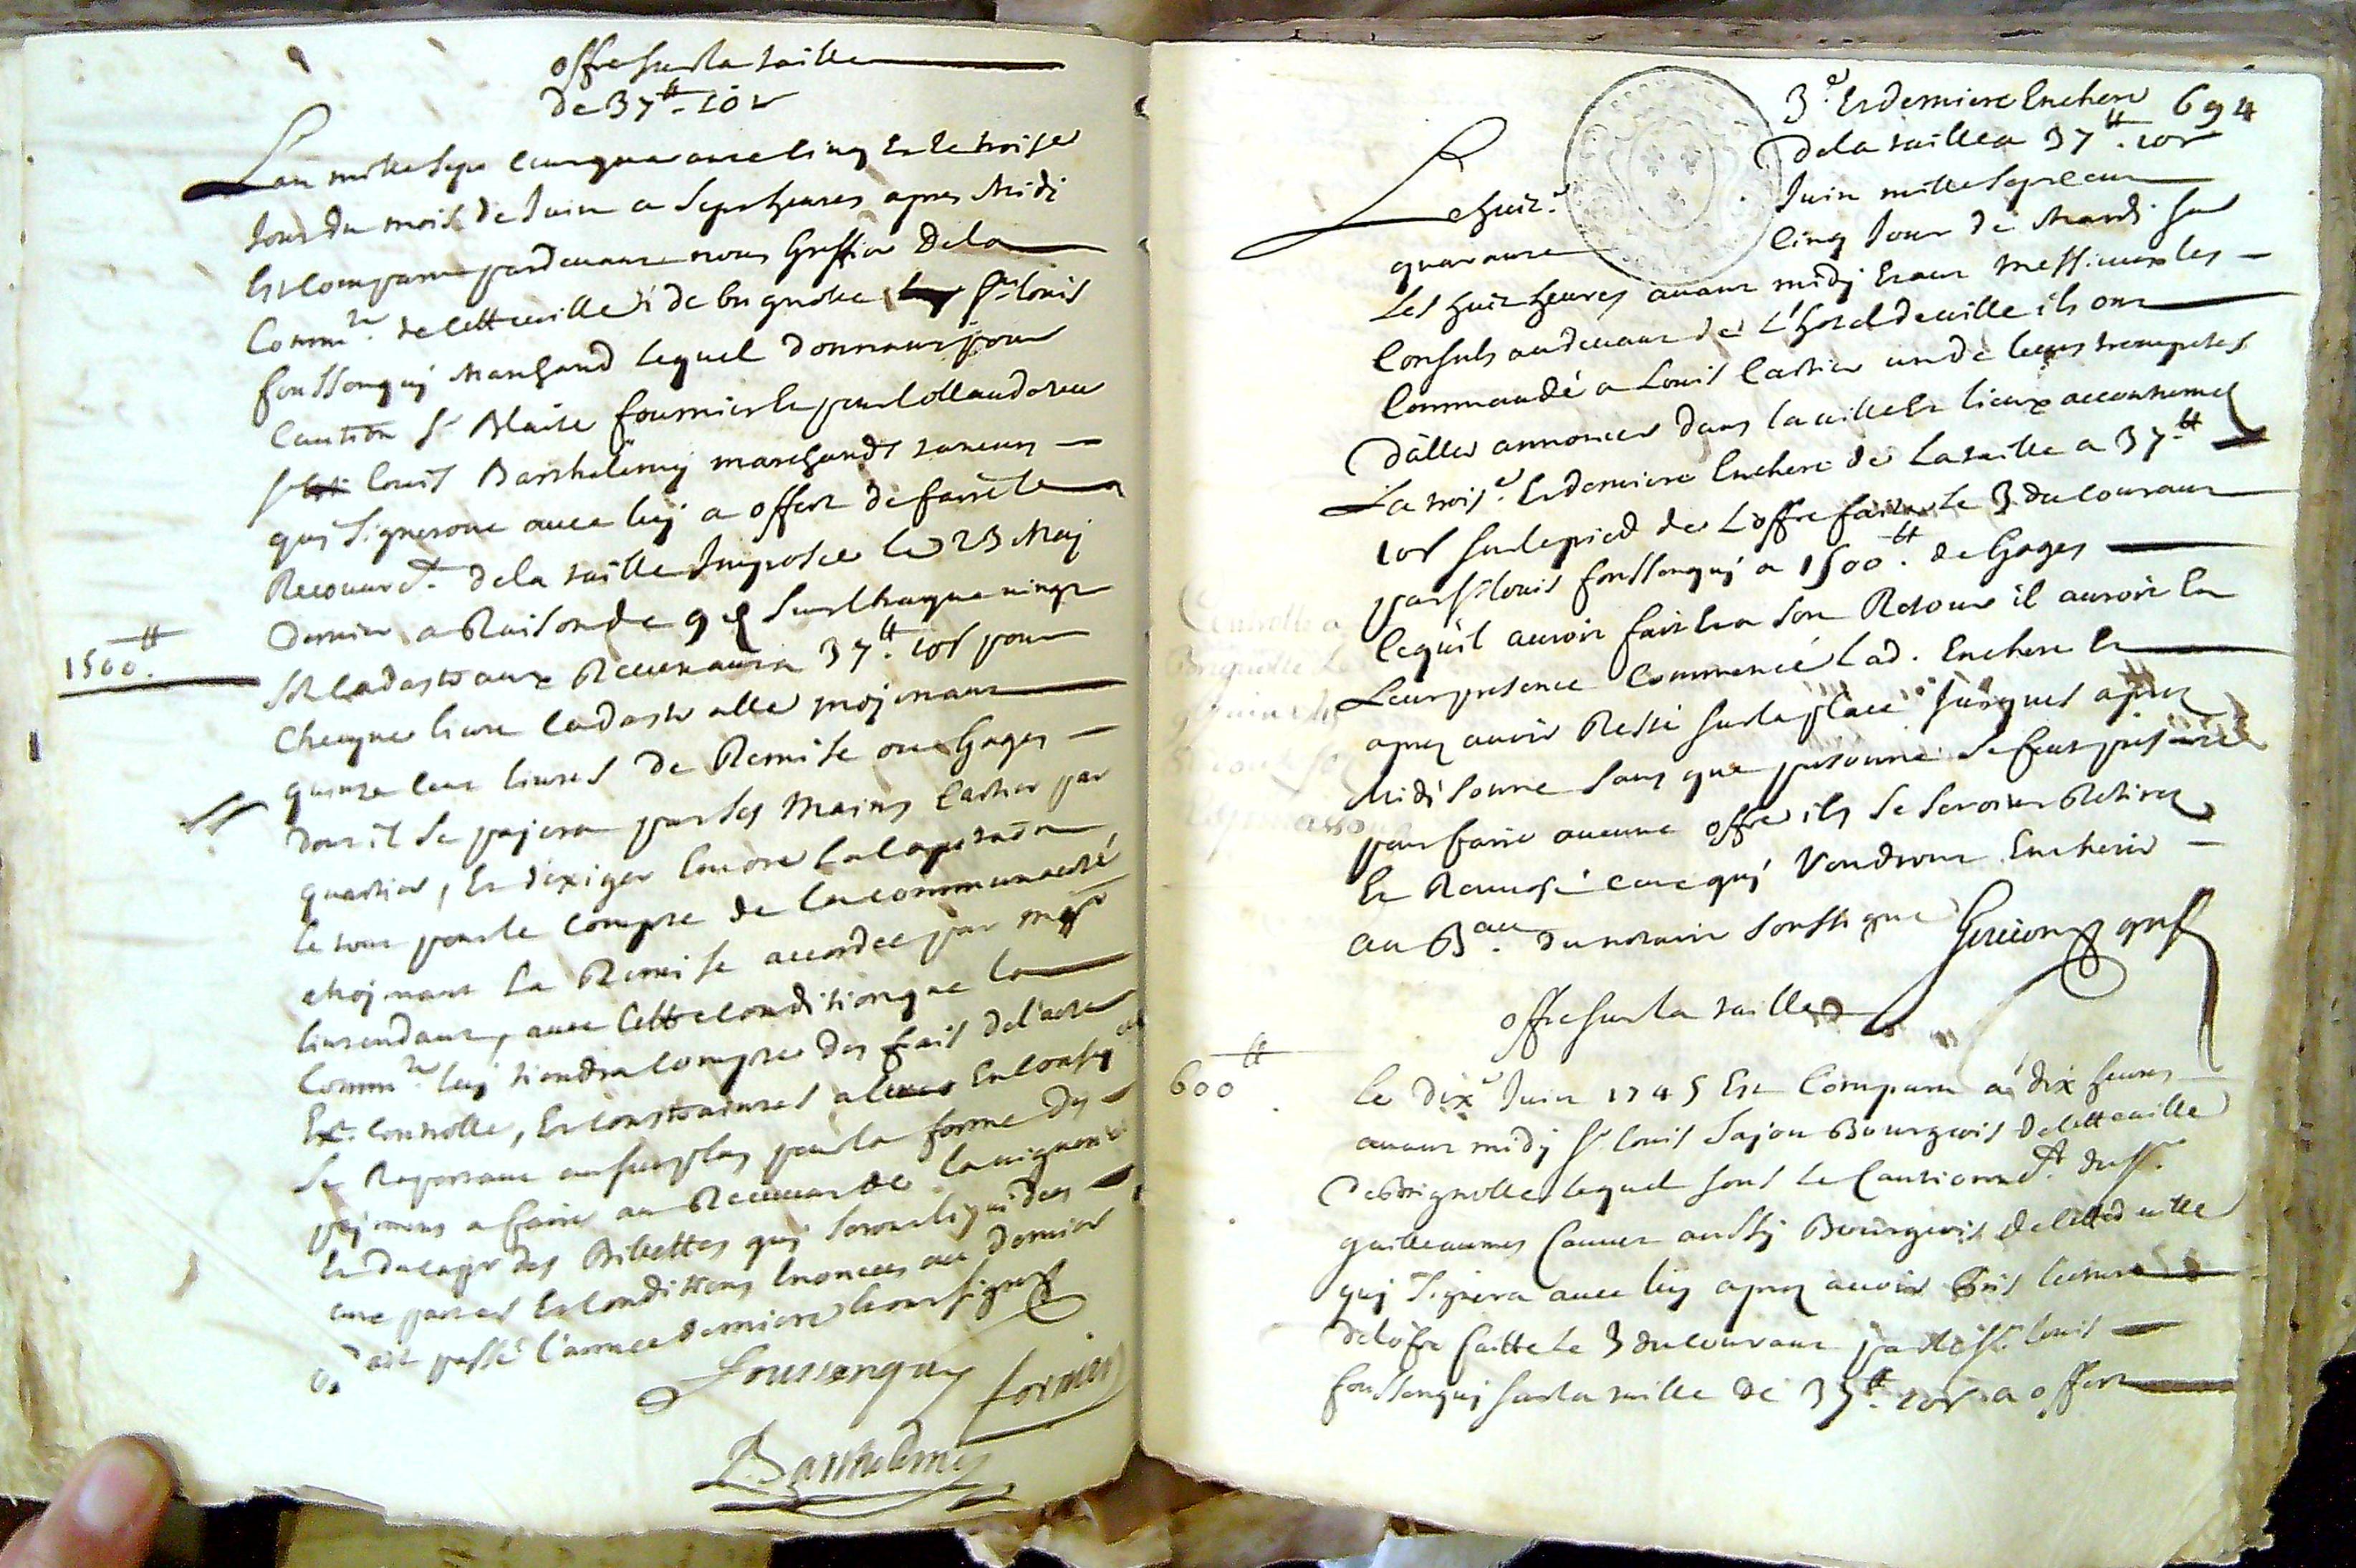 offre sur la taille
de 37 ₶ 10 s
Lan mille sept cens quarante cinq et le troise
jour du mois de Juin a sept heures apres Midi
est comparu pardevant nous Greffier de la
Comm.té de cette ville de brignolle Sr louis
foussenquy Marchand lequel donnant pour
caution Sr Blaise fournier et pour collaudateur
Sr louis Barthelemy marchands taneurs
quy signeront avec luy a offert de faire le
Recouvr.t de la taille Imposée le 23 May
dernier a Raison de 9 d sur chaque vingt
1500 ₶
sols cadastraux Revenant a 37 ₶ 10 s pour
cheque livre cadastralle mojenant
quinze cens livres de Remise ou Gages
dont il se pajera par ses Mains cartier par
quartier, et d'exiger encore la capitation
le tout pour le compte de la communauté,
mojenant la Remise accordée par mgr
lintendant, avec cette condition que la
Comm.té luy tiendra compte des frais de l'acte
et controlle,
se Raportant au surplus pour la forme des
pajemens a faire au Receveur de la viguerie
et du cazir des Billettes quy seront liquidees
aux pactes et conditions enoncees au dernier
bail passé l'année derniere et ont signé
Foussenquy fornier
L. Barthelemy
3.e et derniere Enchere 694
de la taille a 37 ₶ 10 s
Le huit.e Juin mille sept cens
quarante cinq Jour de Mardi sur
Les huit heures avant midy Etant Messieurs les
Consuls au devant de L'hotel de ville ils ont
Commandé a Louis Cartier un de leurs trompetes
D'aller annoncer dans la ville et lieux accoutumes
La trois.e et derniere Enchere de La taille a 37 ₶
10 s sur le pied de L'offre faite le 3 du courant
par Sr louis foussenquy a 1500 ₶ de Gages
ce quil auroit fait et a son Retour il auroit en
Leur presence Commencé lad. Enchere et
aprez avoir Resté sur la place jusques aprez
Midi sonné sans que personne se feut presenté
pour faire aucune offre ils se seroient Retirez
et Renvoyé ceux quy Voudront Encherir
au B.au du notaire soussigné Goujon gref
offre sur la taille
600 ₶
Le dix.e Juin 1745 Est Comparu a dix heures
avant midy Sr louis Sajou Bourgeois de cette ville
de Brignolles lequel sous le Cautionn.t du Sr
guilleaumes Cauvet aussy Bourgeois de cette d. ville
quy signera avec luy aprez avoir pris lecture
de l'ofre faitte le 3 du courant par led. Sr louis
foussenquy sur la taille de 37 ₶ 10 s a offert